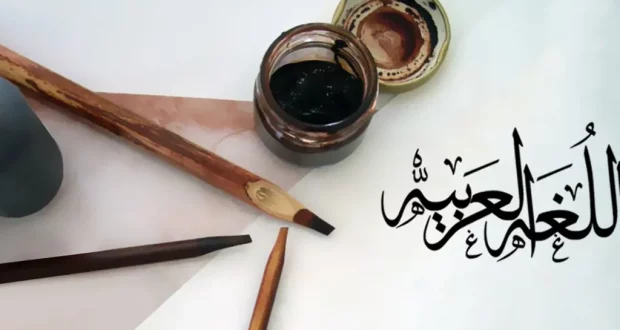 اللُغَة العَرَبية